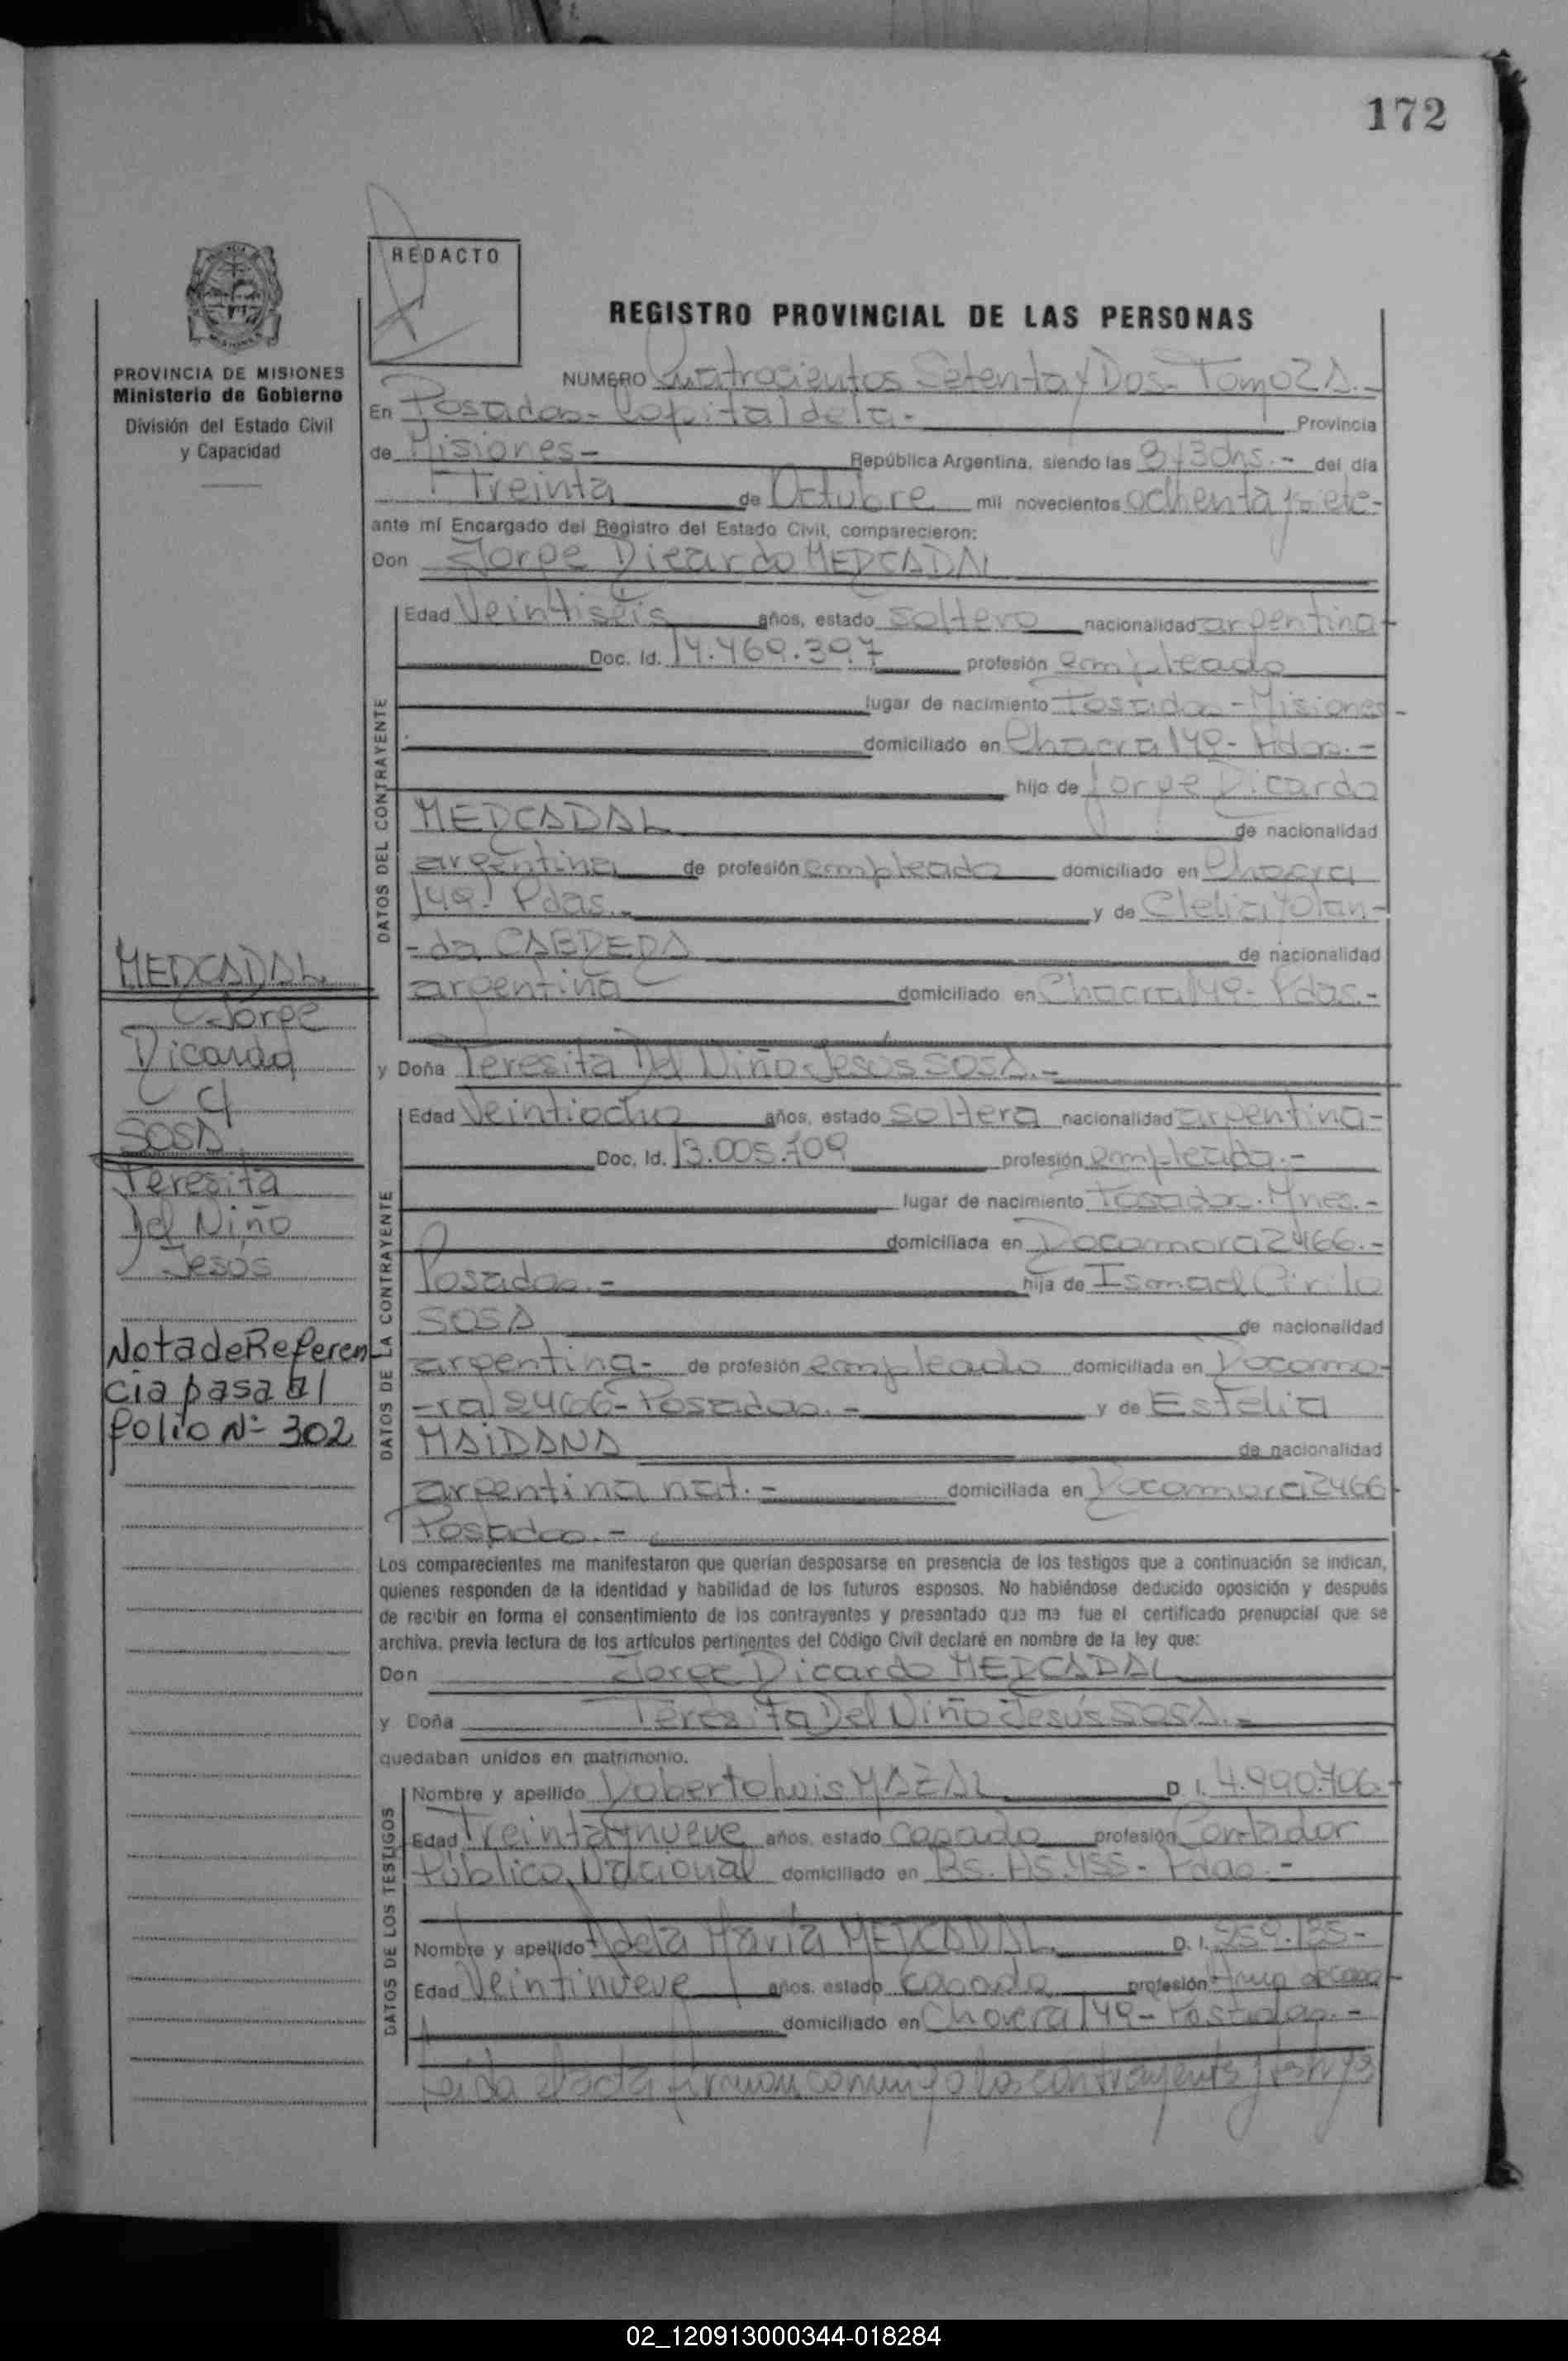 172
REDACTO
REGISTRO PROVINCIAL DE LAS PERSONAS
PROVINCIA DE MISIONES
Ministerio de Gobierno
División del Estado Civil
y Capacidad
NUMERO Cuatrocientos Setenta y Dos- Tomo 2 A.-
En Posadas- Capital de la- Provincia
de Misiones- República Argentina, siendo las 8,30hs.- del día
Treinta de Octubre mil novecientos ochenta y siete-
ante mí Encargado del Registro del Estado Civil, comparecieron:
Don Jorge Ricardo MERCADAL
DATOS DEL CONTRAYENTE
Edad Veintiseis años, estado soltero nacionalidad argentina
Doc. Id. 14.469.397 profesión empleado
lugar de nacimiento Posadas - Misiones
domiciliado en Chacra 149-
hijo de Jorge Ricardo
MERCADAL de nacionalidad
argentina de profesión empleado domiciliado en Chacra
149! Pdas.- y de Clelia Yolan-
-da CABRERA de nacionalidad
argentina domiciliado en Chacra 149- Pdas.-
y Doña Teresita Del Niño Jesús SOSA.-
DATOS DE LA CONTRAYENTE
Edad Veintiocho años, estado soltera nacionalidad argentina-
Doc. Id. 13.005.709 profesión empleada.-
lugar de nacimiento Posadas. Mnes.-
domiciliada en Rocamora 2466.-
Posadas.- hija de Ismael Cirilo
SOSA de nacionalidad
argentina- de profesión empleado domiciliada en Rocamo-
-ra 2466- Posadas.- y de Estelia
MAIDANA de nacionalidad
argentina nat.- domiciliada en Rocamora 2466
Posadas.-
Los comparecientes me manifestaron que querían desposarse en presencia de los testigos que a continuación se indican,
quienes responden de la identidad y habilidad de los futuros esposos. No habiéndose deducido oposición y después
de recibir en forma el consentimiento de los contrayentes y presentado que me fue el certificado prenupcial que se
archiva, previa lectura de los artículos pertinentes del Código Civil declaré en nombre de la ley que:
Don Jorge Ricardo MERCADAL
y Doña Teresita Del Niño Jesús SOSA.-
quedaban unidos en matrimonio.
DATOS DE LOS TESTIGOS
Nombre y apellido Roberto Luis MAZAL D. I. 4.990.706-
Edad Treinta y nueve años, estado casado profesión Contador
Público Nacional domiciliado en Bs. As. 455- Pdas.-
Nombre y apellido Adela María MERCADAL D. I.
Edad Veintinueve años, estado casada profesión Ama de casa
domiciliado en Chacra 149- Posadas.-
Leida el acta firman conmigo los contrayentes y testigos
MERCADAL
Jorge
Ricardo
c/
SOSA
Teresita
del Niño
Jesús
Nota de Referen
cia pasa al
folio Nº 302
02_120913000344-018284